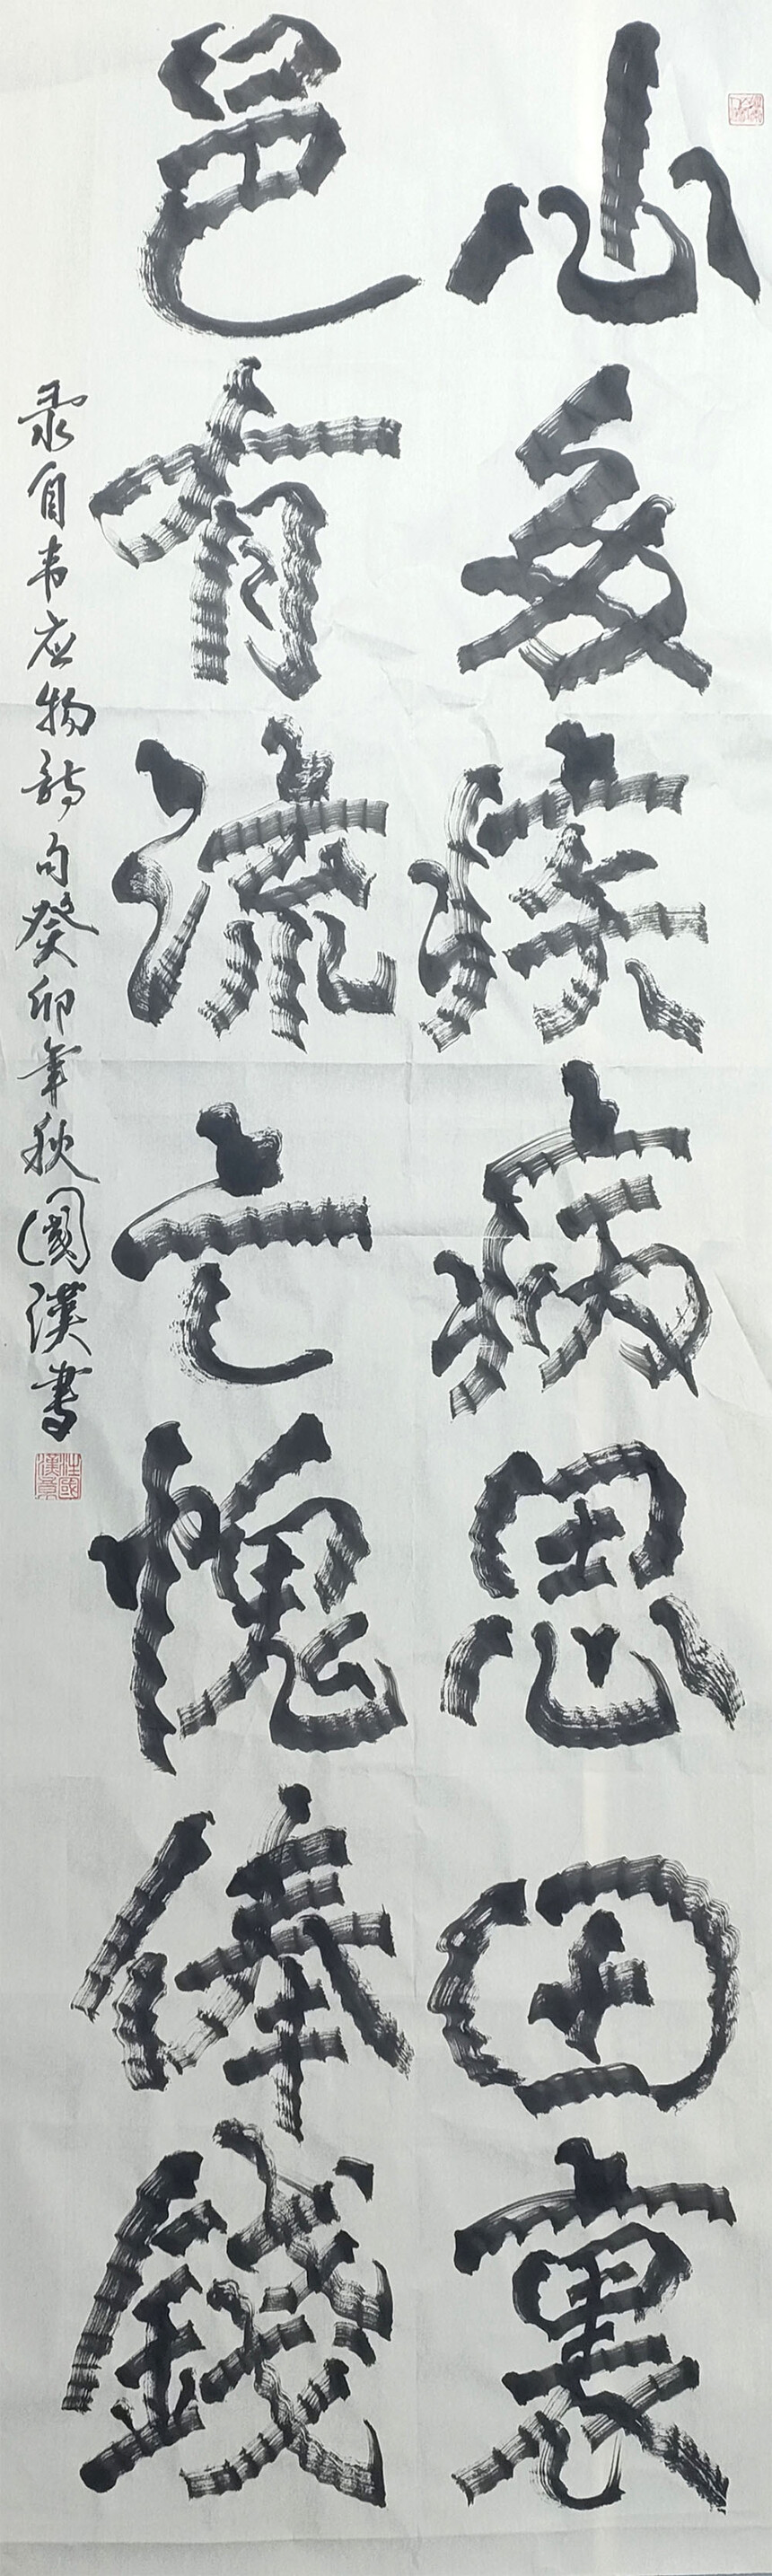 心多疾病思田裏
邑有流亡愧俸錢
录自韦应物詩句癸卯年秋國漢書
汪國漢章